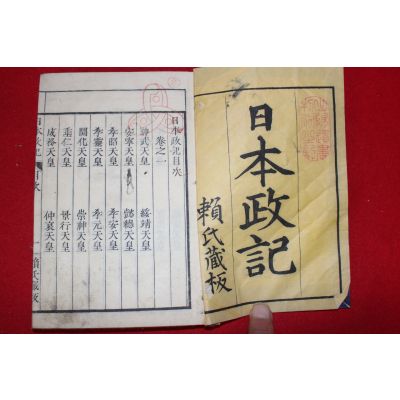 日本政記
頼氏藏板
日本政記目次
卷之一
神武天皇 綏靖天皇
安寧天皇 懿德天皇
孝昭天皇 孝安天皇
孝靈天皇 孝元天皇
開化天皇 崇神天皇
垂仁天皇 景行天皇
成務天皇 仲哀天皇
日本政記 目次 一 頼氏藏板